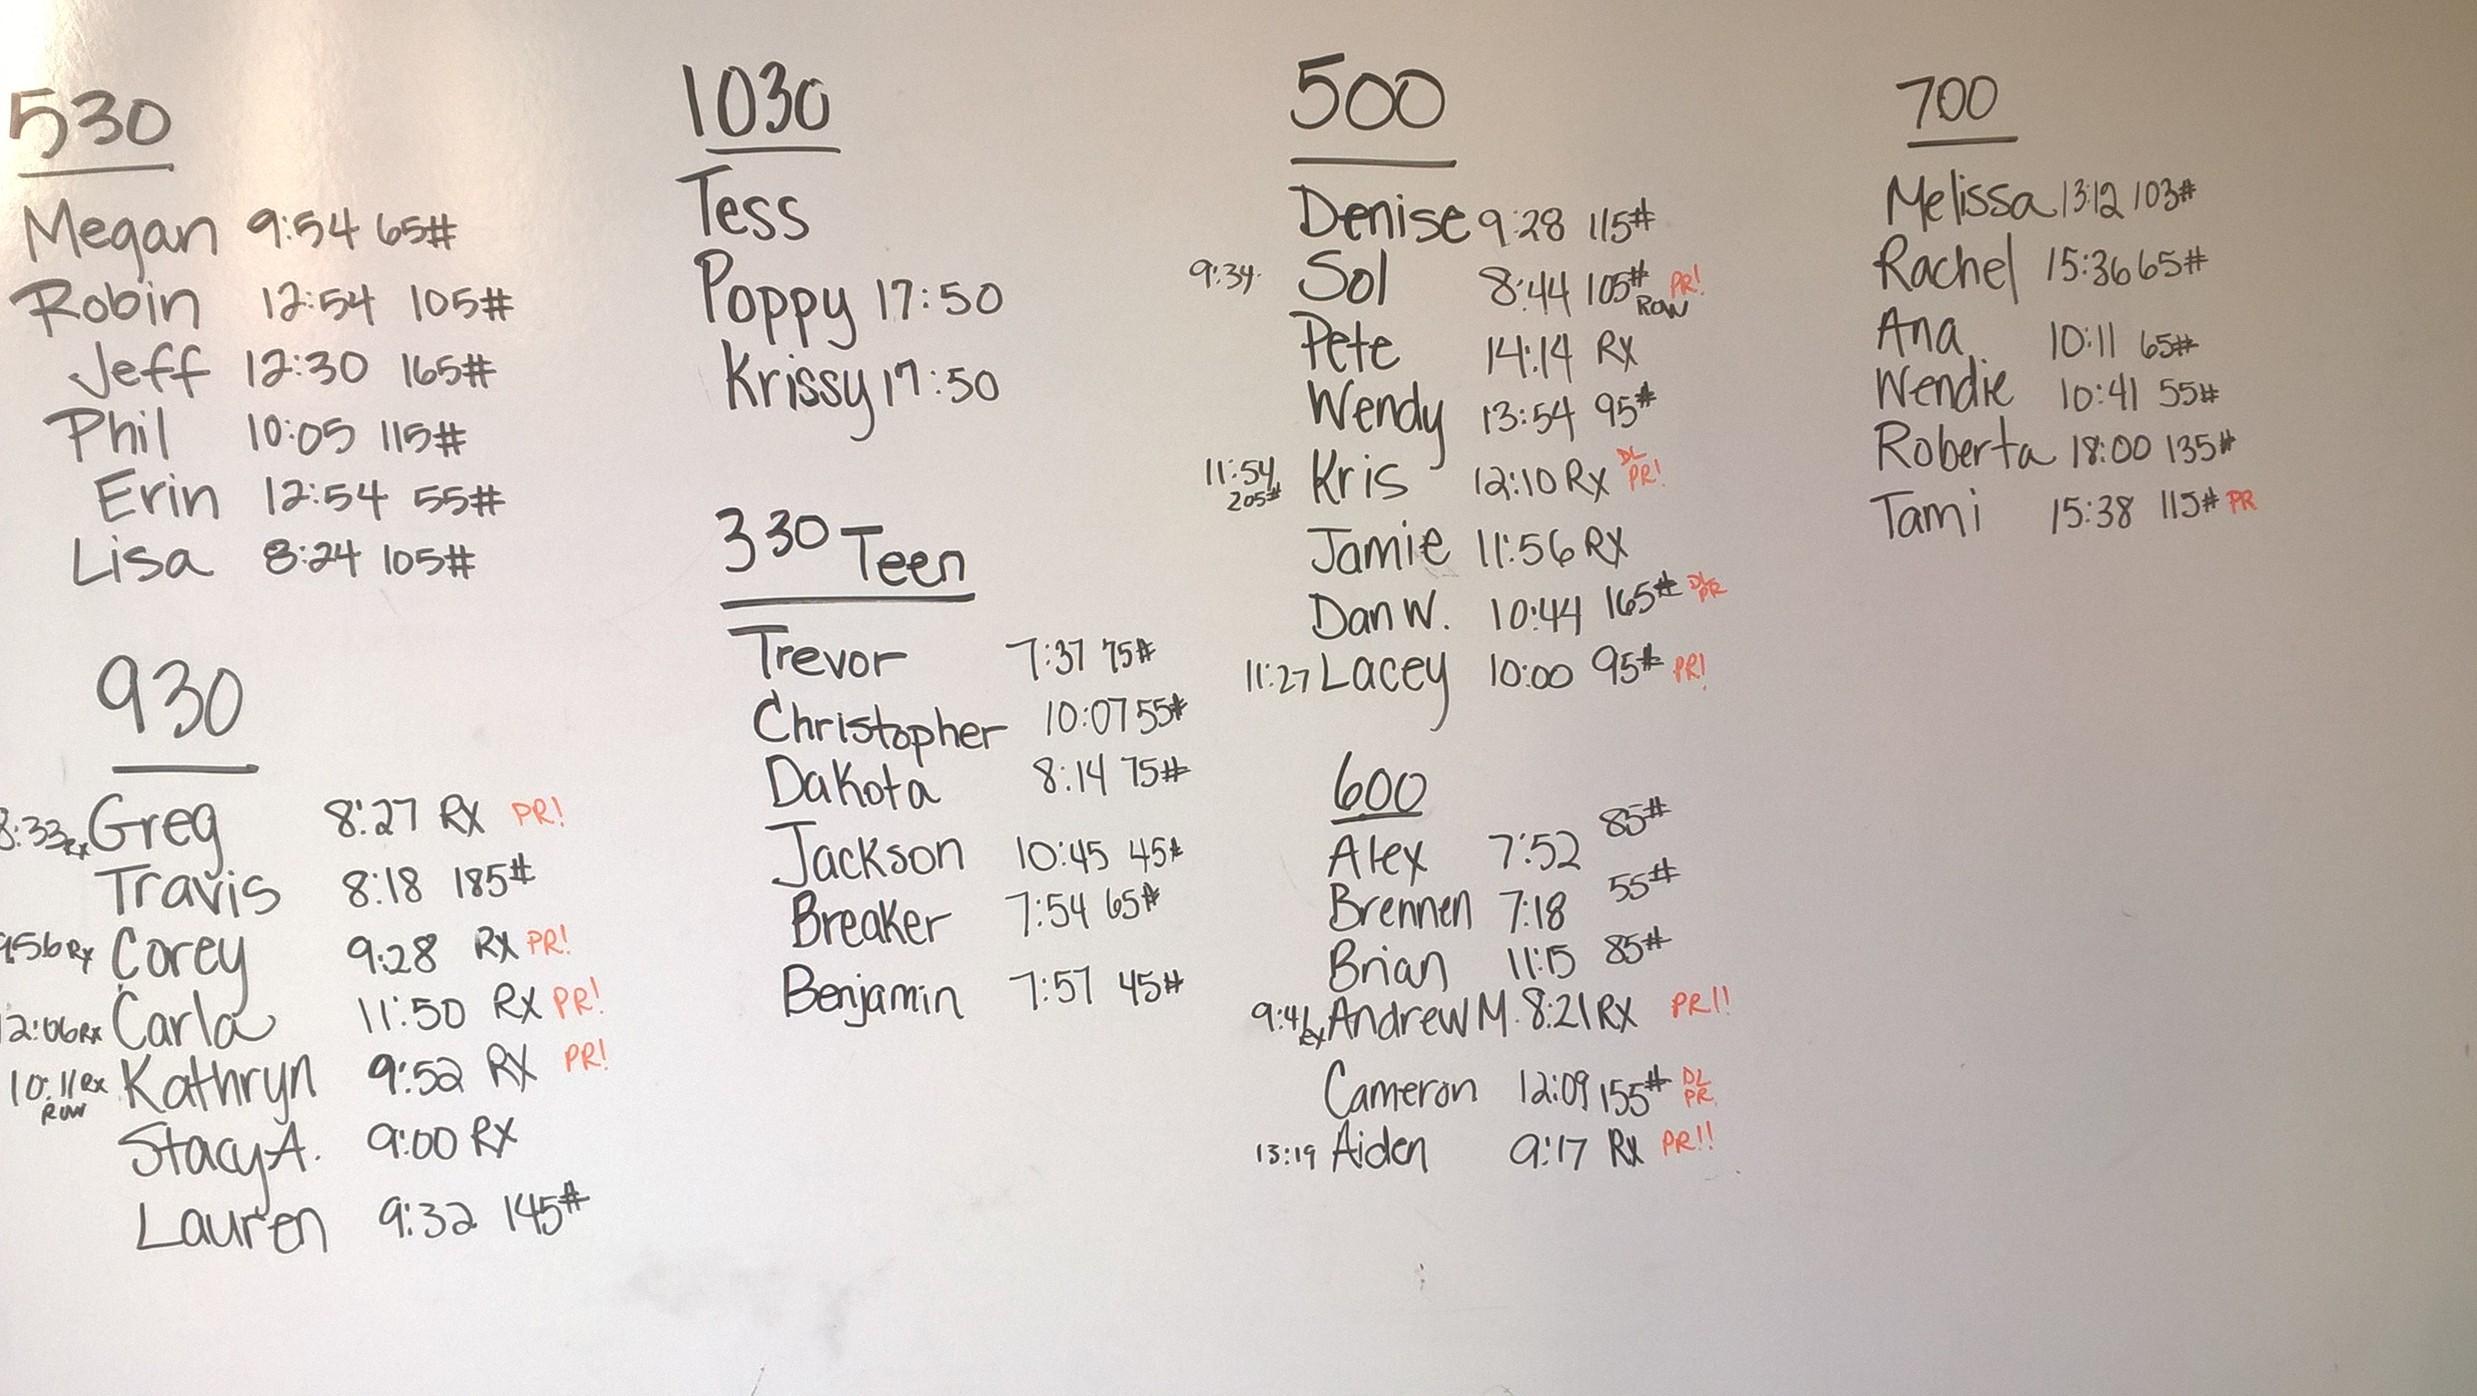 530
Megan 9:54 65#
Robin 12:54 105#
Jeff 12:30 165#
Phil 10:05 115#
Erin 12:54 55#
Lisa 8:24 105#
930
8:33 Rx Greg 8:27 RX PR!
Travis 8:18 185#
956 Rx Corey 9:28 RX PR!
2:06 Rx Carla 11:50 RX PR!
10:11 Rx Kathryn 9:52 RX PR!
ROW
Stacy A. 9:00 RX
Lauren 9:32 145#
1030
Tess
Poppy 17:50
Krissy 17:50
330 Teen
Trevor 7:37 75#
Christopher 10:07 55#
Dakota 8:14 75#
Jackson 10:45 45#
Breaker 7:54 65#
Benjamin 7:57 45#
500
Denise 9:28 115#
9:34 Sol 8:44 105# PR!
ROW
Pete 14:14 RX
Wendy 13:54 95#
11:54 Kris 12:10 Rx DL PR!
205#
Jamie 11:56 RX
Dan W. 10:44 165# DL PR
11:27 Lacey 10:00 95# PR!
600
Alex 7:52 85#
Brennen 7:18 55#
Brian 11:15 85#
Rx Andrew M. 8:21 RX PR!!
Cameron 12:09 155# DL PR
13:19 Aiden 9:17 Rx PR!!
700
Melissa 13:12 103#
Rachel 15:36 65#
Ana 10:11 65#
Wendie 10:41 55#
Roberta 18:00 135#
Tami 15:38 115# PR